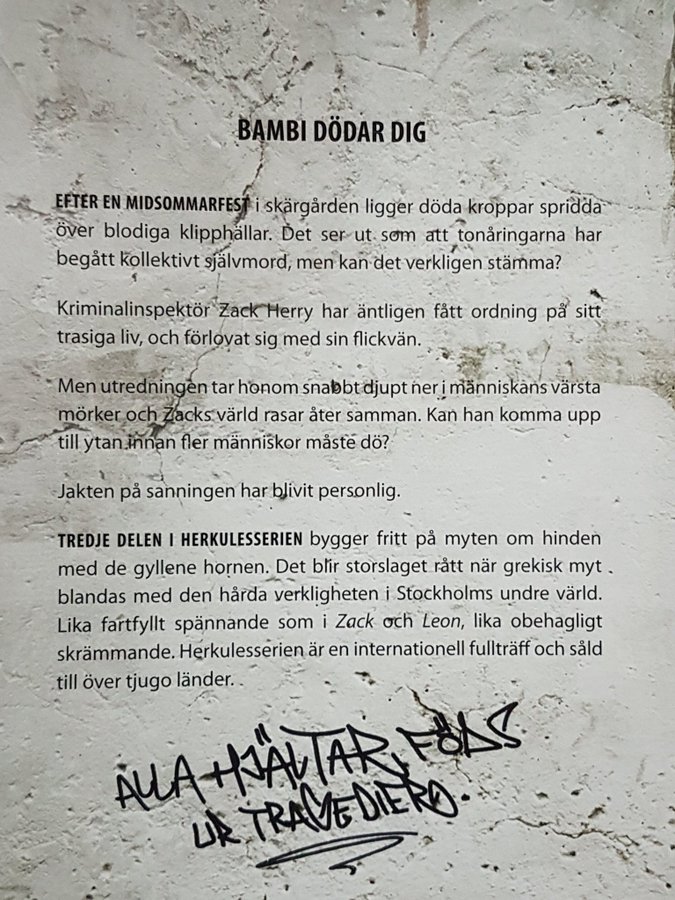 BAMBI DÖDAR DIG
EFTER EN MIDSOMMARFEST i skärgården ligger döda kroppar spridda
över blodiga klipphällar. Det ser ut som att tonåringarna har
begått kollektivt självmord, men kan det verkligen stämma?
Kriminalinspektör Zack Herry har äntligen fått ordning på sitt
trasiga liv, och förlovat sig med sin flickvän.
Men utredningen tar honom snabbt djupt ner i människans värsta
mörker och Zacks värld rasar åter samman. Kan han komma upp
till ytan innan fler människor måste dö?
Jakten på sanningen har blivit personlig.
TREDJE DELEN I HERKULESSERIEN bygger fritt på myten om hinden
med de gyllene hornen. Det blir storslaget rått när grekisk myt
blandas med den hårda verkligheten i Stockholms undre värld.
Lika fartfyllt spännande som i Zack och Leon, lika obehagligt
skrämmande. Herkulesserien är en internationell fullträff och såld
till över tjugo länder.
ALLA HJÄLTAR FÖDS
UR TRAGEDIERO.